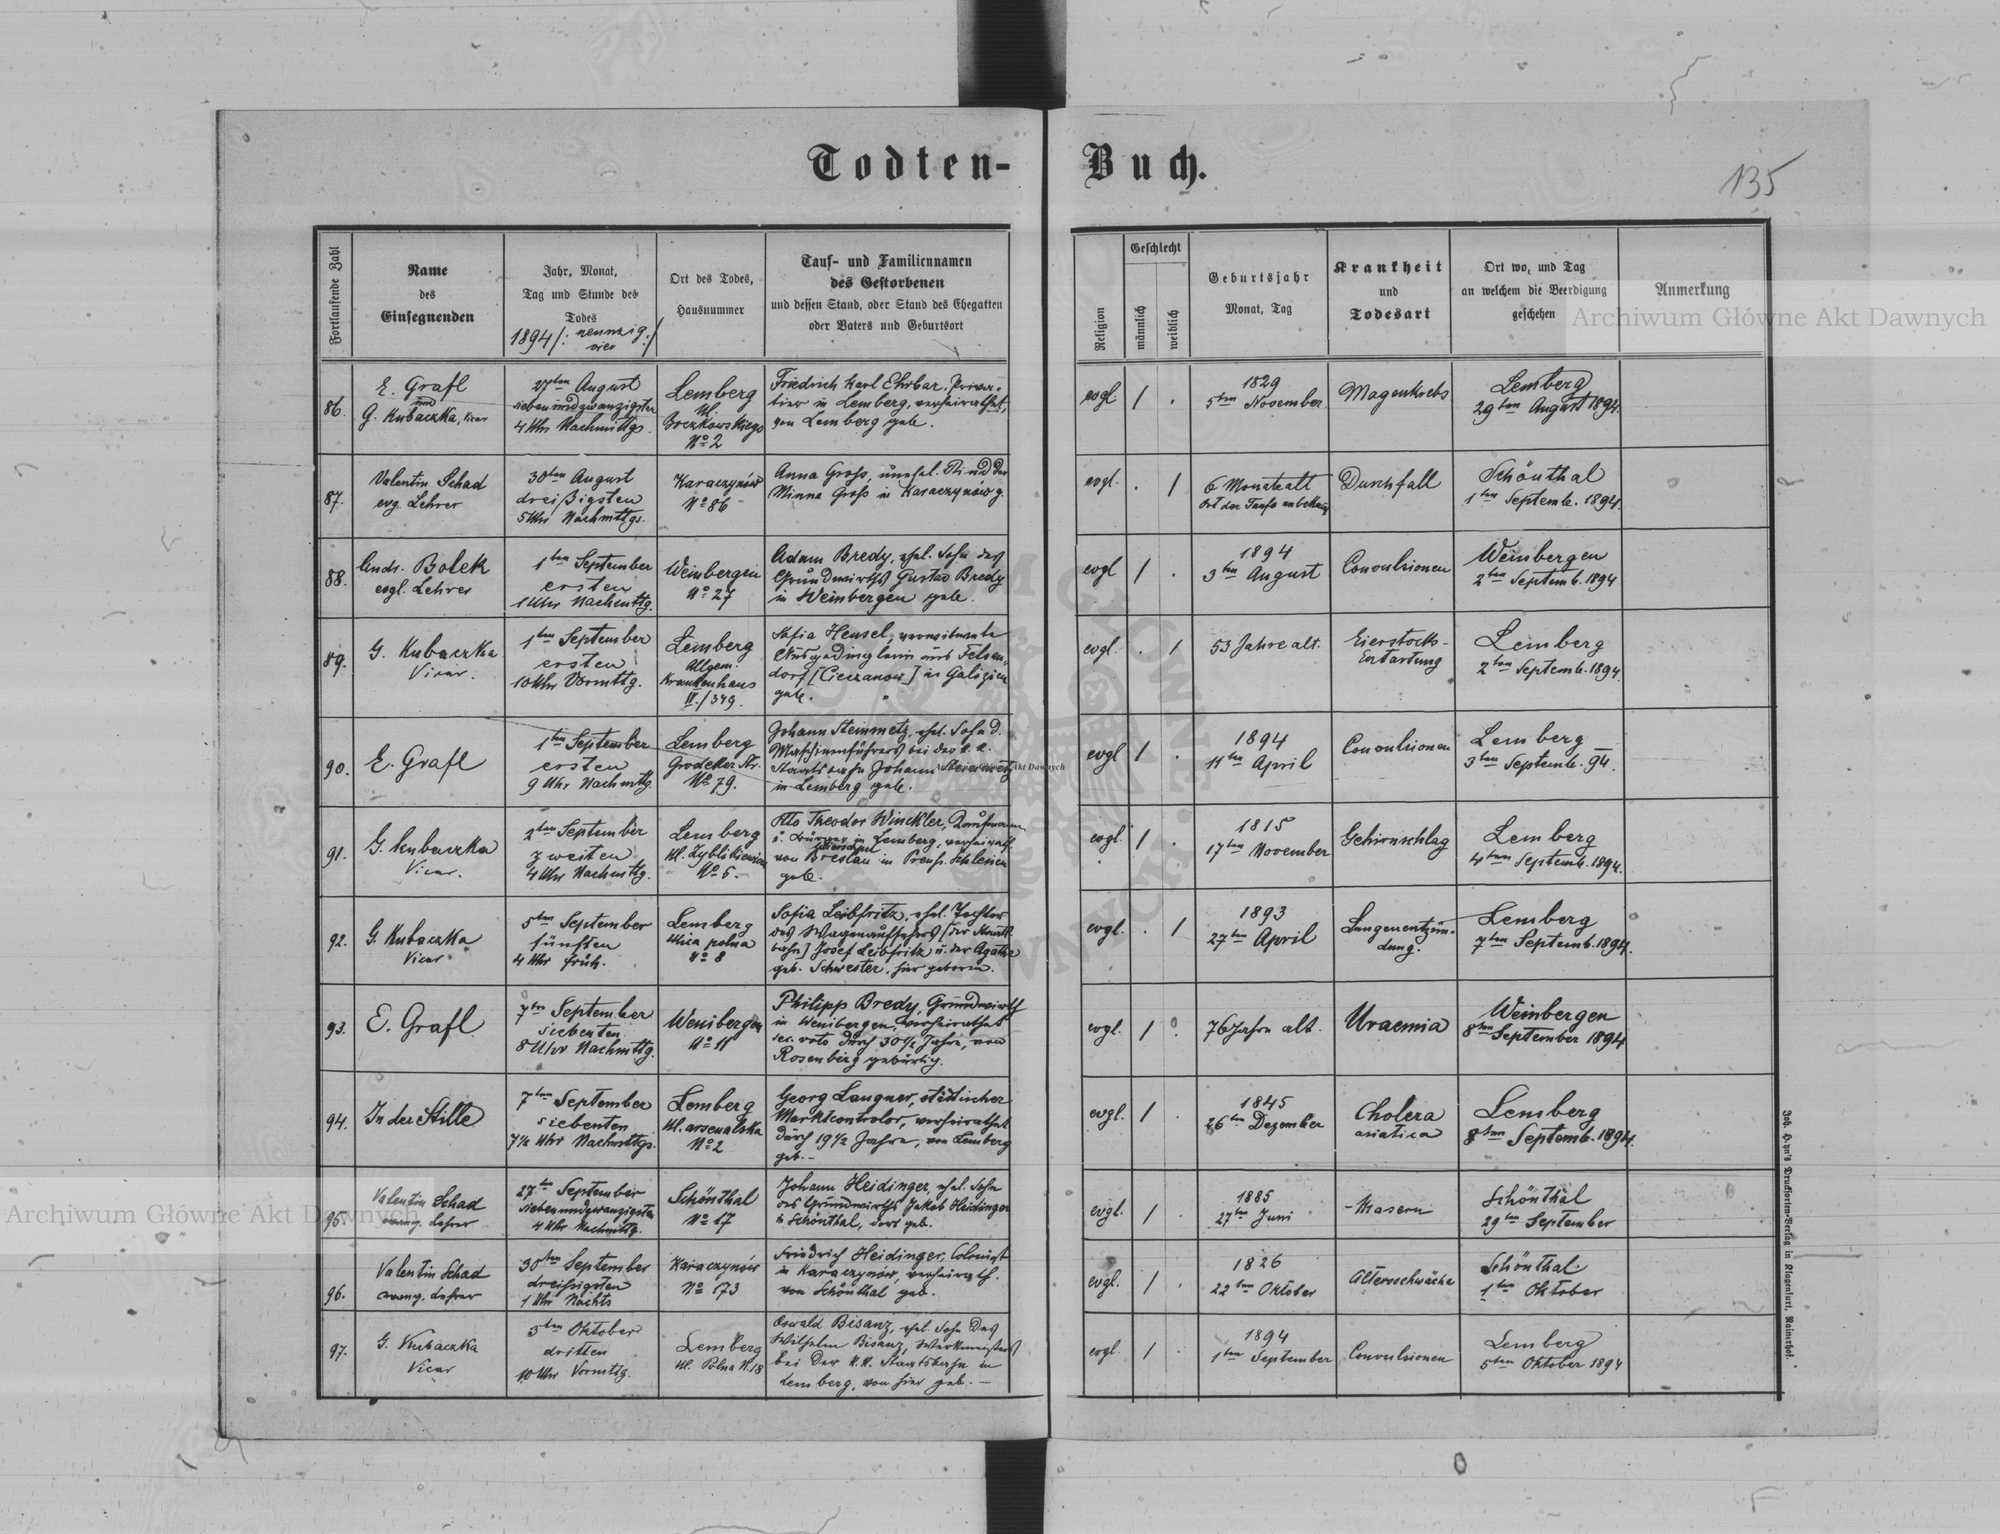 Todten-Buch.
135
Fortlaufende Zahl
Name
des
Einsegnenden
Jahr, Monat,
Tag und Stunde des
Todes
1894 /: neunzig:/
vier
Ort des Todes,
Hausnummer
Tauf- und Familiennamen
des Gestorbenen
und dessen Stand, oder Stand des Ehegatten
oder Vaters und Geburtsort
Religion
Geschlecht
männlich
weiblich
Geburtsjahr
Monat, Tag
Krankheit
und
Todesart
Ort wo, und Tag
an welchem die Beerdigung
geschehen
Anmerkung
86.
E. Grafl
und
G. Kubaczka, Vicar
27ten August
siebenundzwanzigsten
4 Uhr Nachmittgs.
Lemberg
Ul.
No 2
Friedrich Karl Ehrbar, Priva-
tier in Lemberg, verheirathet,
von Lemberg geb.
evgl
1829
5ten November
Magenkrebs
Lemberg
29ten August 1894.
87.
Valentin Schad
evg. Lehrer
30ten August
dreißigsten
5 Uhr Nachmttgs.
Karaczynów
No 86
Anna Groß, unehel. Kind der
Minna Groß in Karaczynów g.
evgl.
6 Monate alt
Ort der Taufe unbekannt
Durchfall
Schönthal
1ten Septemb. 1894.
88.
Andr. Bolek
evgl. Lehrer
1ten September
ersten
1 Uhr Nachmttg.
Weinbergen
No 27
Adam Bredy, ehel. Sohn des
Grundwirths Gustav Bredy
in Weinbergen geb.
evgl
1894
3ten August
Convulsionen
Weinbergen
2ten Septemb. 1894
89.
G. Kubaczka
Vicar.
1ten September
ersten
10 Uhr Vormttg.
Lemberg
Allgem.
Krankenhaus
II./349.
Sofia Hensel, verwitwete
Ausgedinglerin aus Felsen-
dorf [Cieszanow] in Galizien
geb.
evgl.
53 Jahre alt.
Eierstocks-
Entartung
Lemberg
2ten Septemb. 1894.
90.
E. Grafl
1ten September
ersten
9 Uhr Nachmttg.
Lemberg
Grodeker Str.
No 79.
Johann Steinmetz, ehel. Sohn d.
Maschinenführers bei der k. k.
Staatsbahn Johann Steinmetz
in Lemberg geb.
evgl
1894
11ten April
Convulsionen
Lemberg
3ten Septemb. 94.
91.
G. Kubaczka
Vicar.
2ten September
zweiten
4 Uhr Nachmttg.
Lemberg
Ul. Zyblikiewicza
No 5.
Otto Theodor Winckler, Kaufmann
u. Bürger in Lemberg, verheirath.
von Breslau in Preuß. Schlesien
geb.
evgl.
1815
17ten November
Gehirnschlag
Lemberg
4ten Septemb. 1894.
92.
G. Kubaczka
Vicar
5ten September
fünften
4 Uhr früh.
Lemberg
Ulica polna
No 8
Sofia Leibfritz, ehel. Tochter
des Wagenaufsehers [der Staats-
bahn] Josef Leibfritz u. der Agathe
geb. Schwester, hier geboren.
evgl.
1893
27ten April
Lungenentzün-
dung.
Lemberg
7ten Septemb. 1894.
93.
E. Grafl
7ten September
siebenten
8 Uhr Nachmttg.
Weinbergen
No 11
Philipp Bredy, Grundwirth
in Weinbergen, verheirathet
sec. voto durch 30 1/2 Jahre, von
Rosenberg gebürtig.
evgl.
76 Jahre alt.
Uraemia
Weinbergen
8ten September 1894
94.
In der Stille
7ten September
siebenten
7 1/2 Uhr Nachmttgs.
Lemberg
Ul. arsenalska
No 2
Georg Langner, städtischer
Marktcontrolor, verheirathet
durch 19 1/2 Jahre, von Lemberg
geb. –
evgl.
1845
26ten Dezember
Cholera
asiatica
Lemberg
8ten Septemb. 1894.
95.
Valentin Schad
evang. Lehrer
27ten September
siebenundzwanzigsten
4 Uhr Nachmttg.
Schönthal
No 67
Johann Heidinger, ehel. Sohn
des Grundwirths Jakob Heidinger
in Schönthal, dort geb.
evgl.
1885
27ten Juni
Masern
Schönthal
29ten September
96.
Valentin Schad
evang. Lehrer
30ten September
dreissigsten
1 Uhr Nachts
Karaczynów
No 173
Friedrich Heidinger, Colonist
in Karaczynów, verheirath.
von Schönthal geb.
evgl.
1826
22ten Oktober
Altersschwäche
Schönthal.
1ten Oktober
97.
G. Kubaczka
Vicar
3ten Oktober
dritten
10 Uhr Vormttg.
Lemberg
Ul. Polna N. 18
Oswald Bisanz, ehel. Sohn des
Wilhelm Bisanz, Werkmeisters
bei der k. k. Staatsbahn in
Lemberg, von hier geb. –
evgl.
1894
1ten September
Convulsionen
Lemberg
5ten Oktober 1894
Archiwum Główne Akt Dawnych
Archiwum Główne Akt Dawnych